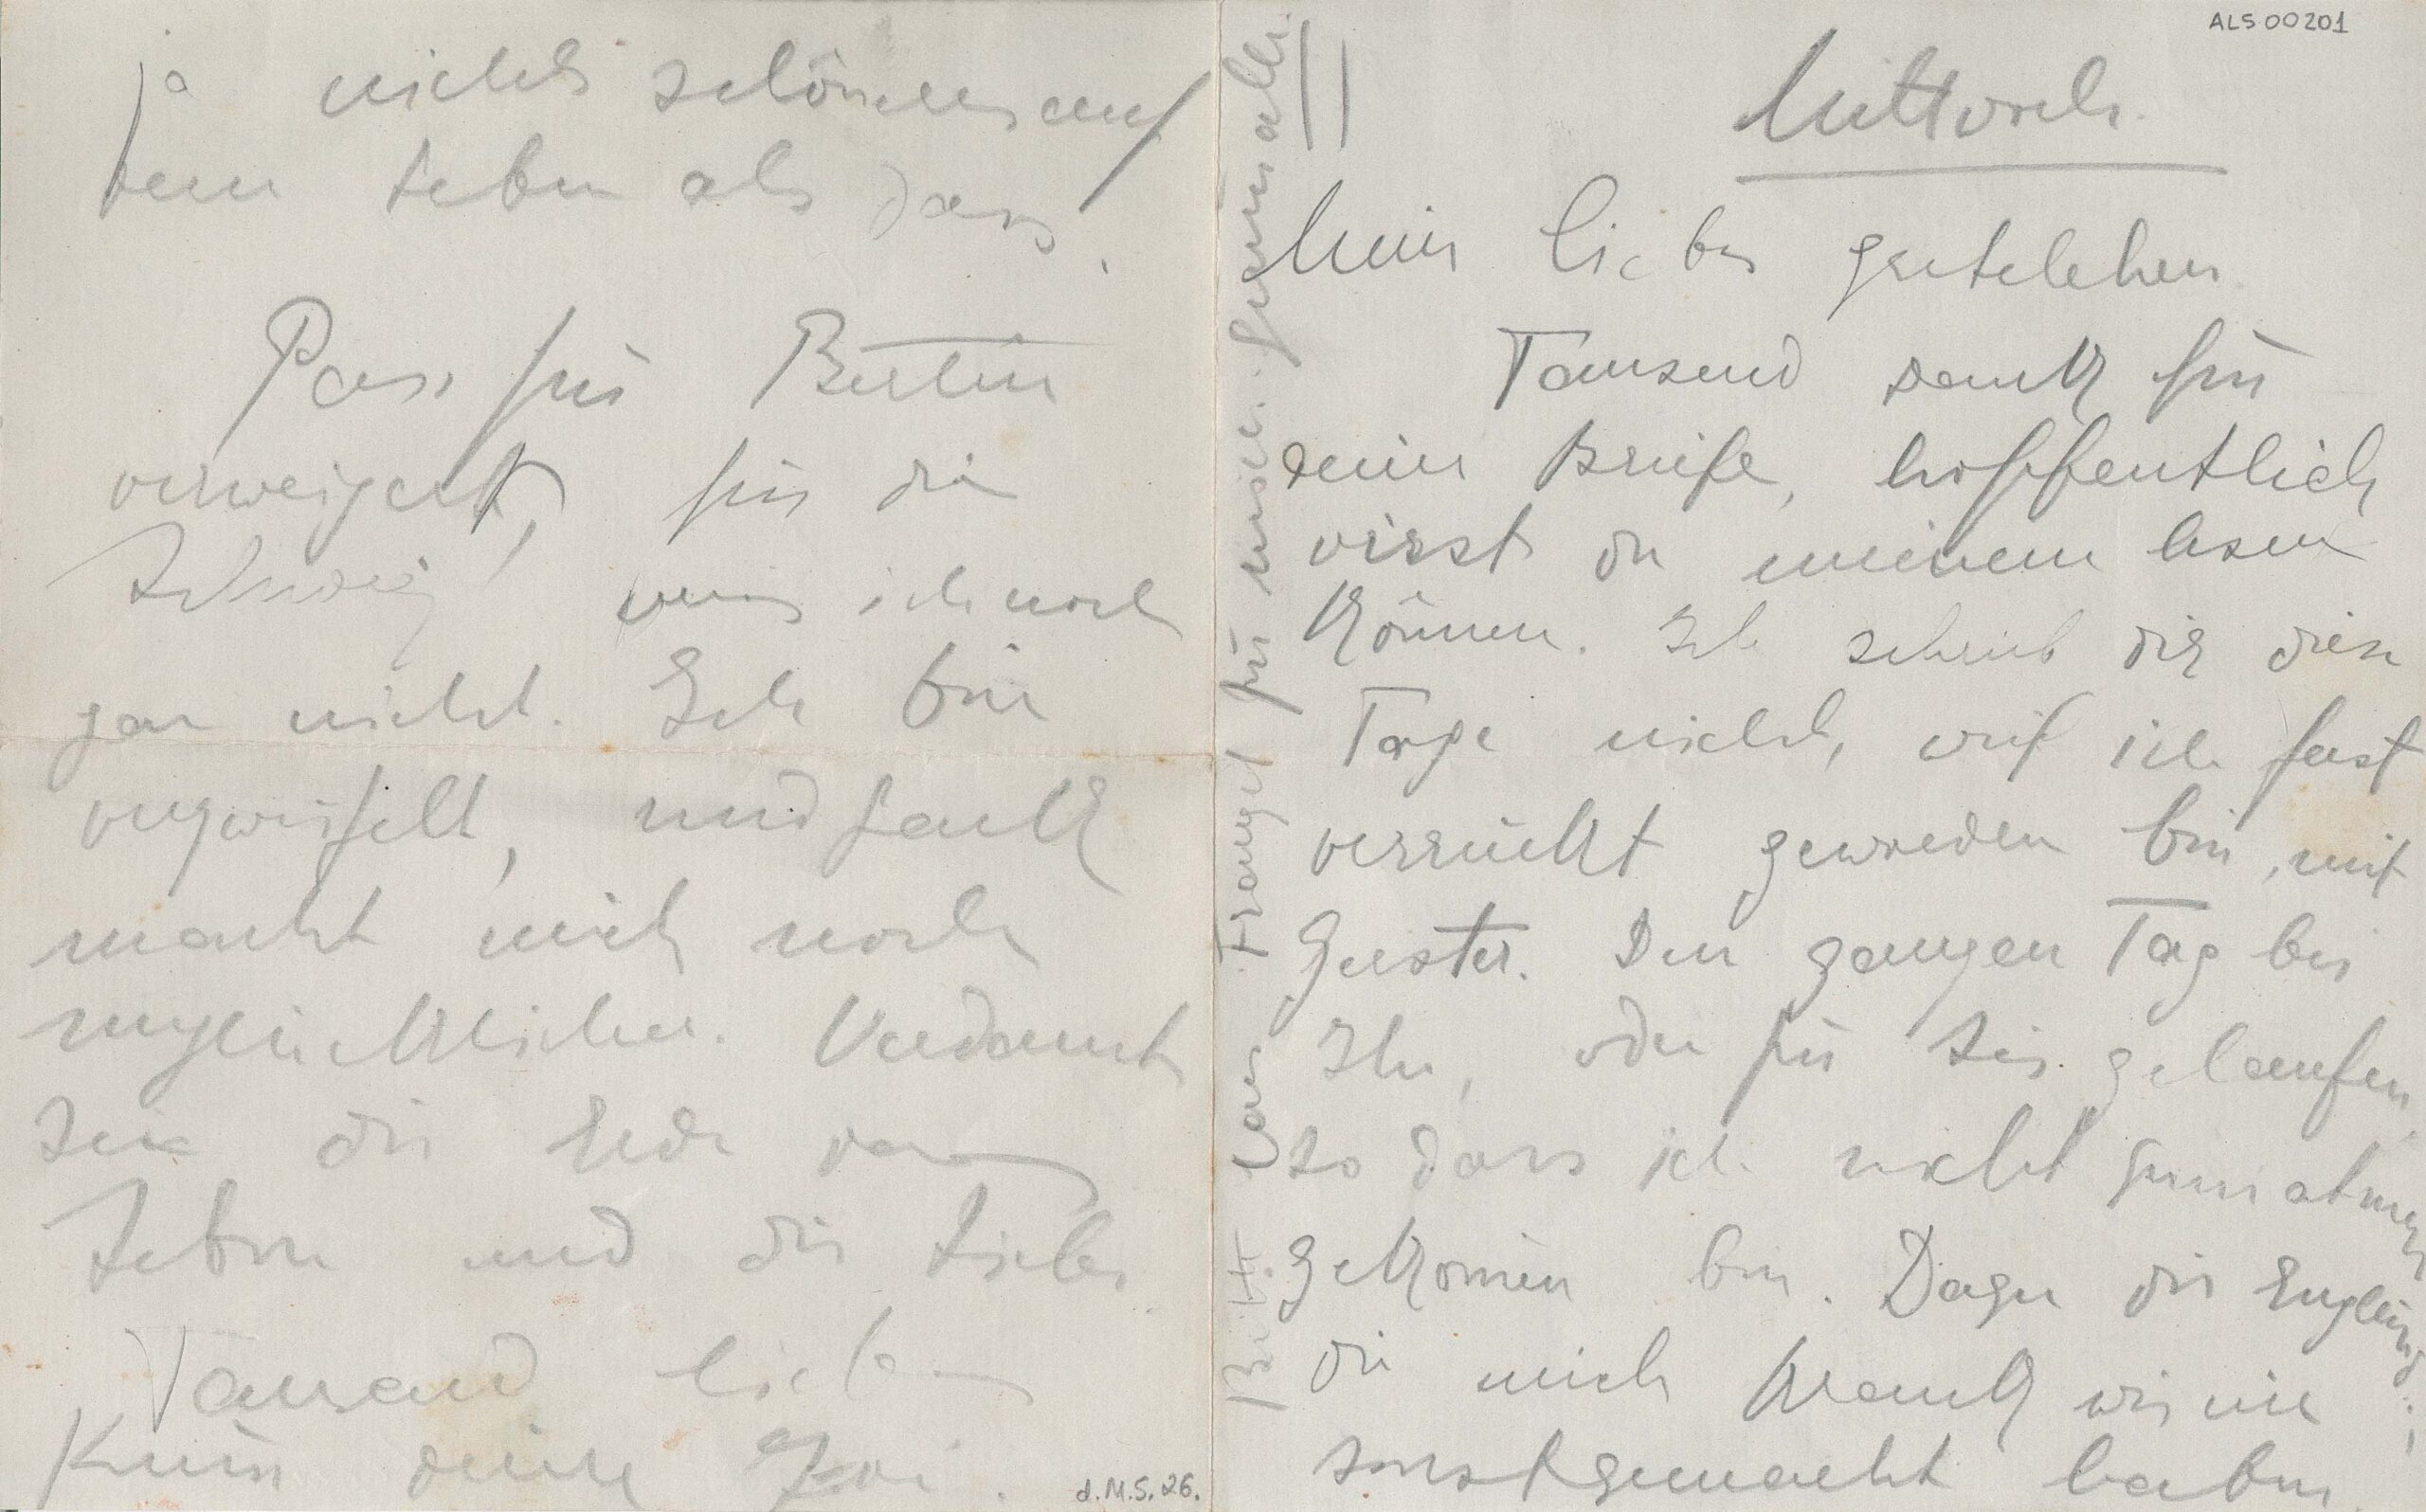 ALS 00201
Mittvoch.
Mein liebes gretelchen
Tausend Dank für
deine Briefe, hoffentlich
virst du meinem lesen
können. Ich schrieb dir diese
Tage nicht, veil ich fast
verrückt geworden bin, mit
Gerster. Den ganzen Tag bei
Ihr, oder für Sie gelaufen,
so dass ich nicht zum atmen
gekomen bin. Dazu die Engländ
die mich krank wie nie
sonst gemacht haben
ja nichts schöneres auf
dem Leben als dass.
Pass für Berlin
verweigert, für die
Schweiz weis ich noch
gar nicht. Ich bin
verzweifelt, und krank
macht mich noch
unglücklicher. Verdamt
sei die Erde das
Leben und die Liebe.
Tausend liebe
Küsse deine
d.M.S. 26.
Bitte Frangel für